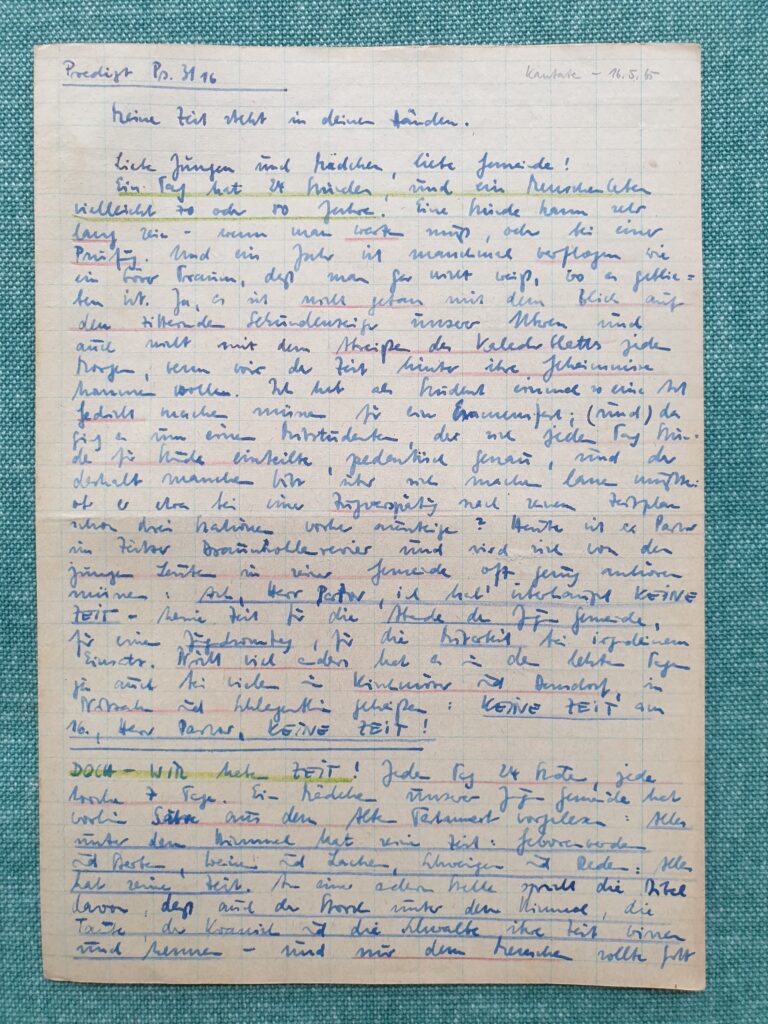 Predigt Ps. 31 16
Kantate - 16.5.65
Meine Zeit steht in deinen Händen.
Liebe Jungen und Mädchen, liebe Gemeinde!
Ein Tag hat 24 Stunden, und ein Menschenleben
vielleicht 70 oder 80 Jahre. Eine Stunde kann sehr
lang sein - wenn man warten muß, oder bei einer
Prüfg. Und ein Jahr ist manchmal verflogen wie
ein böser Traum, daß man gar nicht weiß, wo es geblie-
ben ist. Ja, es ist nicht getan mit dem Blick auf
den zitternden Sekundenzeiger unserer Uhren und
auch nicht mit dem Abreißen des Kalenderblatts jeden
Morgen, wenn wir der Zeit hinter ihre Geheimnisse
kommen wollen. Ich hab als Student einmal so eine Art
Gedicht machen müssen für ein Examensfest; (und) da
ging es um einen Mitstudenten, der sich jeden Tag Stun-
de für Stunde einteilte, pedantisch genau, und der
deshalb manchen Witz über sich machen lassen mußte:
ob er etwa bei einer Zugverspätg nach seinem Zeitplan
schon drei Stationen vorher aussteige? Heute ist er Pastor
im Zeitzer Braunkohlenrevier und wird sich von den
jungen Leuten in seiner Gemeinde oft genug anhören
müssen: Ach, Herr Pastor, ich hab' überhaupt KEINE
ZEIT - keine Zeit für die Abende der Jgn Gemeinde,
für einen Jugdsonntag, für die Mitarbeit bei irgdeinem
Einsatz. Nicht viel anders hat es in den letzten Tagen
ja auch bei vielen in Kirchmöser ud Bensdorf, in
Nitzahn ud geheißen: KEINE ZEIT am
16., Herr Pastor, KEINE ZEIT!
DOCH - WIR haben ZEIT! Jeden Tag 24 Stden, jede
Woche 7 Tage. Ein Mädchen unserer Jgn Gemeinde hat
vorhin Sätze aus dem Alten Testament vorgelesen: Alles
unter dem Himmel hat seine Zeit: Geborenwerden
ud Sterben, Weinen ud Lachen, Schweigen ud Reden: Alles
hat seine Zeit. An einer andern Stelle spricht die Bibel
davon, daß auch der Storch unter dem Himmel, die
Taube, der Kranich ud die Schwalbe ihre Zeit wissen
und kennen - und nur dem Menschen sollte Gott